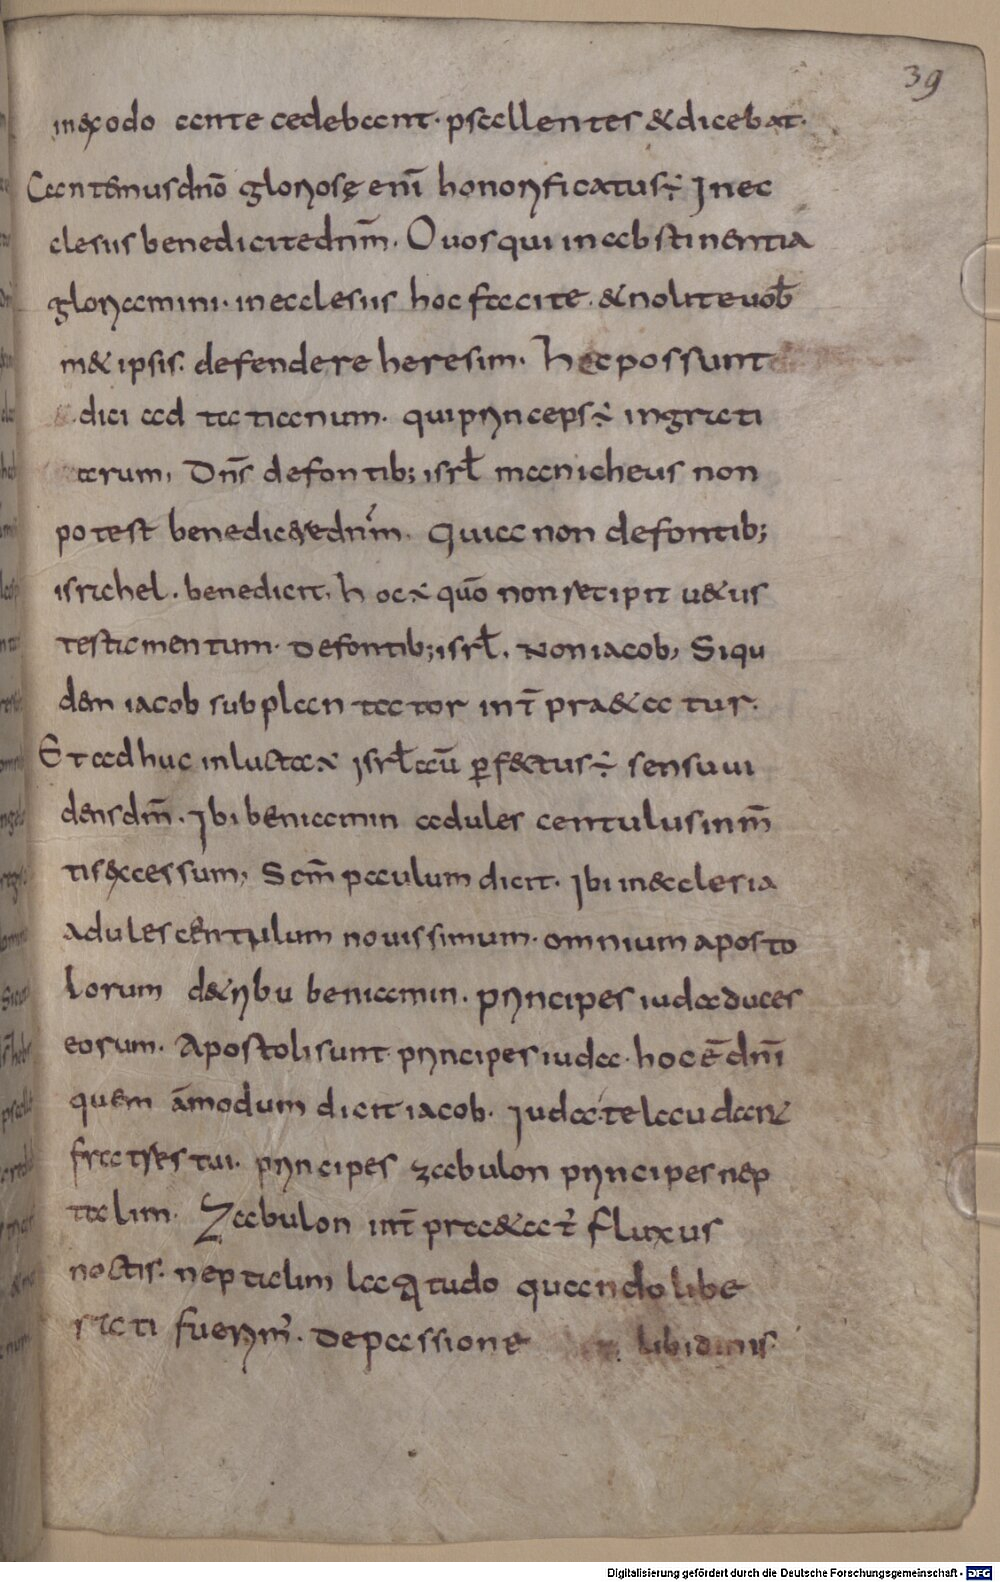 39
inexodo ante cedebant· psallentes &dicebat·
Cantemusdnō gloriosę enī honorificatus÷ Inec
clesiis benedicitednm̄· Quos qui inabstinentia
gloriamini· inecclesiis hoc facite· &nolite uob̄
m& ipsis· defendere heresim· hec possunt
dici ad tatianum· qui princeps÷ ingrati
arum, Dn̄s defontib; isrl̄ manicheus non
potest benedic&redn̄m· Quia non defontib;
israhel· benedicit, hoc÷ quō non recipit u&us
testamentum· Defontib; isrl̄· Noniacob, Siqui
dem iacob subplantator int̄ pra&atur·
Et adhuc inlucta÷ isrl̄ aū p̄f&ctus÷ sensu ui
densdm̄· Ibi beniamin adulescentulus inm̄
tisexcessum, Scm̄ paulum dicit· Ibi inecclesia
adulescentulum nouissimum· omnium aposto
lorum d&ribu beniamin· principes iudaduces
eorum· Apostoli sunt principes iuda· hoc ē dnī
quem āmodum dicit iacob· Iuda· te laudant
fratres tui· principes zabulon principes nep
talim· Zabulon int̄ pra&at̄ fluxus
noctis· neptalim latitudo quando libe
rati fuerim̄· Depassione libidinis·
Digitalisierung gefördert durch die Deutsche Forschungsgemeinschaft - DFG